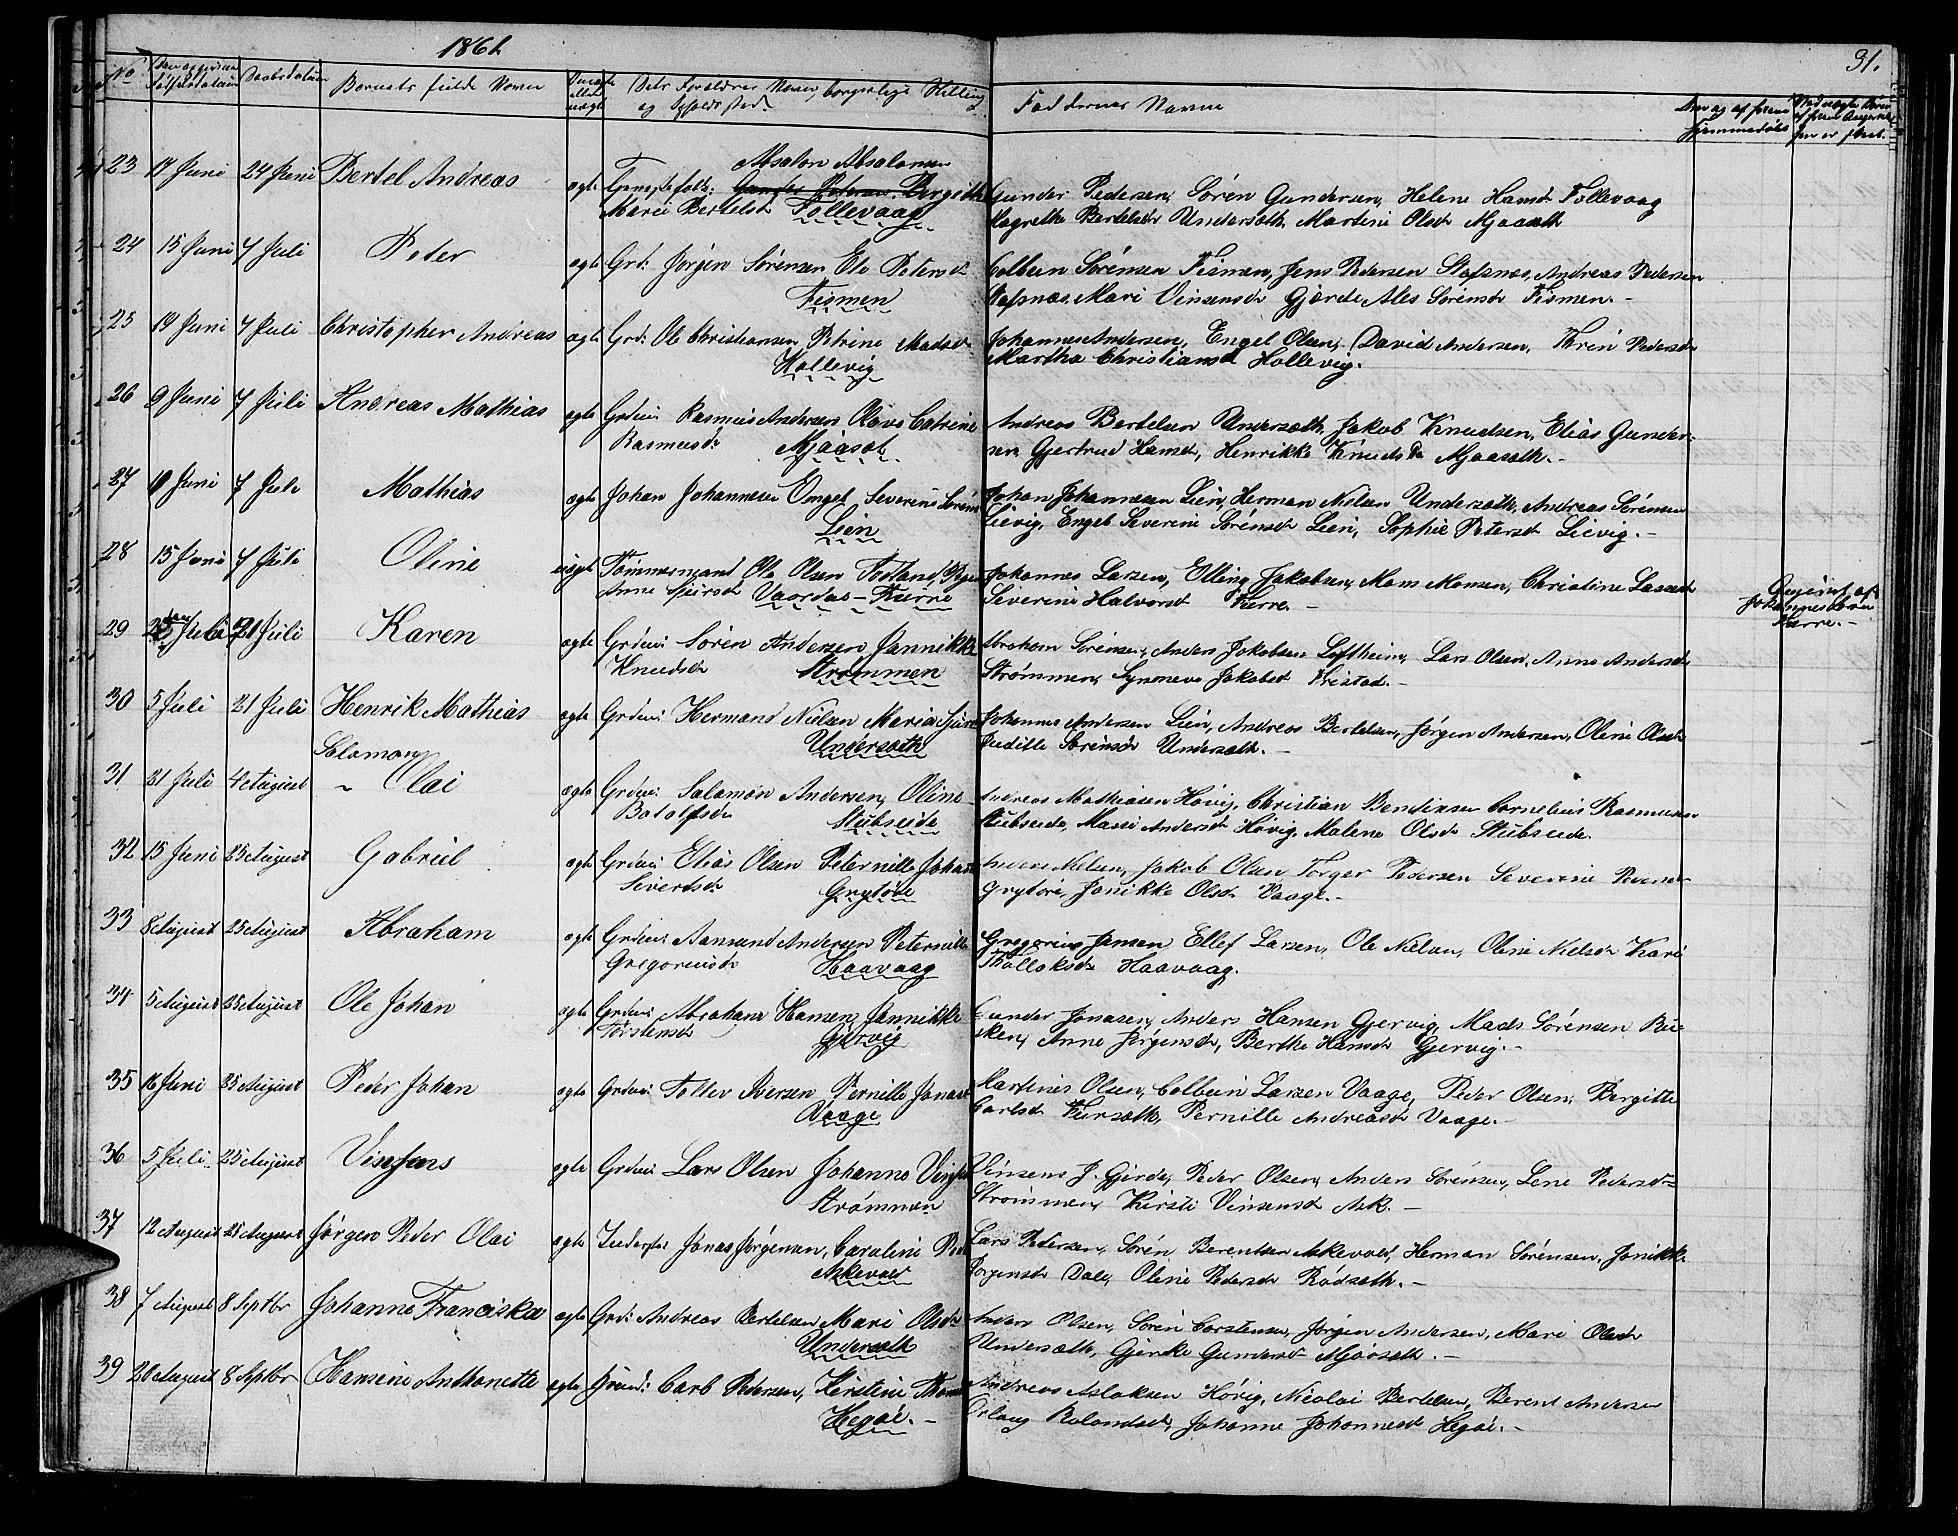 1861
31.
No
Daabsdatum
Barnets fulde Navn
Dets Forældres Navn, borgerlige Stilling
og Opholdssted
Faddernes Navne
23 17 Juni 24 Juni Bertel Andreas ægte Absalon Absalonsen
Gunder Pedersen, Sören Gundersen, Helene Hansd Follevaag
Marie Bertelsd Follevaag
Magrethe Bertelsdr Undersæth, Martine Olsd Mjaasæth
24 15 Juni 7 Juli Peter ægte Grd: Jørgen Sørensen Ele Petersd
Fismen
Colbein Sörensen Fismen, Jens Pedersen Stafsnæs, Andreas Pedersen
Stafsnæs, Mari Vinsensdr Gjerde, Ales Sörensdr Fismen.-
25 19 Juni 7 Juli Christopher Andreas ægte Grd: Ole Christiansen, Petrine Madsd
Hollevig
Johannes Andersen, Engel Olsen, David Andersen, Thrin Pedersdr
Martha Christiansd Hollevig.
26 9 Juni 7 Juli Andreas Mathias ægte Grdm: Rasmus Andersen Olave Catrine
Rasmusdr Mjaasæt
Andreas Bertelsen Undersæth, Jakob Knudsen, Elias Gunder-
sen, Gjertrud Hansd, Henrikke Knudsdr Mjaasæth.-
27 Juni 7 Juli Mathias ægte Johan Johannesen Engel Severine Sørens
Lien
Johan Johannesen Lien, Herman Nielsen Undersæth, Andreas Sörensen
Lievig, Engel Severine Sörensdr Lien, Sophie Petersdr Lievig.-
28 15 Juni 7 Juli Oline uægte Tömmermand Ole Olsen Todland, Pige
Anne Sjursdr Vaardal-Kierre
Johannes Larsen, Elling Jakobsen, Mons Monsen, Christine Larsdr
Severine Halvorsdr Kierre.-
Angivet af
Johannes
Kierre.-
29 Juli 21 Juli Karen ægte Grdm: Sören Andersen, Jannikke
Knudsdr Strømmen
Abraham Sörensen, Anders Jakobsen Loftheim, Lars Olsen, Anne Andersdr
Strømmen, Synneve Jakobsdr Tvistad.-
30 5 Juli 21 Juli Henrik Mathias ægte Grdm: Hermand Nielsen Maria Sjurs
Undersæth
Johannes Andersen Lien, Andreas Bertelsen, Jørgen Andersen, Oline Olsdr
Sörensdr Undersæth.-
31 21 Juli 4 August Salomon
Olai ægte Grdm: Salomon Andersen, Oline
Botolfsdr Stubseide
Andreas Mathiasen Høvig, Christian Bendixen Cornelius Rasmussen
Stubseide, Mari Andersdr Høvig, Malene Olsdr Stubseide.
32 15 Juni 25 August Gabriel ægte Grdm: Elias Olsen Peternille Johanne
Sivertsdr Grytöre
Nielsen, Jakob Olsen, Torger Pedersen Severine
Grytöre, Janikke Olsdr Vaage.-
33 8 August 25 August Abraham ægte Grdm: Aamund Andersen Peternille
Gregoriusdr Haavaag
Gregorius Jensen Ellef Larsen, Ole Nielsen, Oline Nielsdr Kari
Thollaksdr Haavaag.
34 5 August 25 August Ole Johan ægte Grdm: Abraham Hansen, Jannikke
Torstensdr Gjervig
Gunder Jonasen, Anders Hansen Gjervig, Mads Sörensen Bu-
sken, Anne Jørgensdr, Berthe Hansdr Gjervig.-
35 16 Juni 25 August Peder Johan ægte Grdm: Tollev Iversen Pernille Jonasd
Vaage
Martines Olsen, Colbein Larsen Vaage, Peder Olsen, Bergitte
Carlsdr Kursæth, Pernille Andreasdr Vaage.-
36 5 Juli 25 August Vinsens ægte Grdm: Lars Olsen Johanne Vins
Strømmen
Vinsens J. Gjerde, Peder Olsen, Anders Sörensen, Lene Pedersdr
Strømmen, Kirsti Vinsensdr Ask.-
37 12 August 25 August Jørgen Peder Olai ægte Inderste Jonas Jørgensen, Caroline Ped
Askevold
Lars Pedersen, Sören Berentsen Askevold, Herman Sörensen, Janikke
Jørgensdr Dale, Oline Pedersdr Rödsæth.-
38 7 August 8 Septbr Johanne Franciska ægte Grd: Andreas Bertelsen Mari Olsdr
Undersæth
Anders Olsen, Sören Carstensen, Jørgen Andersen, Mari Olsdr
Undersæth, Gjerke Gundersdr Mjaasæth.-
39 20 August 8 Septbr Hansine Anthonette ægte Grdm: Carl Pedersen, Kirstine Thom
Hegøe.-
Andreas Aslaksen Høvig, Nicolai Bertelsen, Berent Andersen
Orlaug Rolandsdr, Johanne Johannesdr Hegøe.-